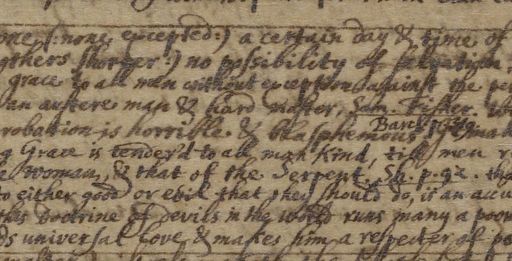 one (: none excepted :) a certain day & time of
others shorter :) no possibility of salvation
grace to all men without exception against the
an austere man & hard master, Sam. Fisher
Baptist
robation is horrible & blasphemous
g Grace is tender'd to all man kind, till men
e woman, & that of the Serpent. Sh. p. 92. tha
to either good or evil that they should do, is an accu
this doctrine of devils in the world runs many a poor
ds universal love & makes him a respecter of pe